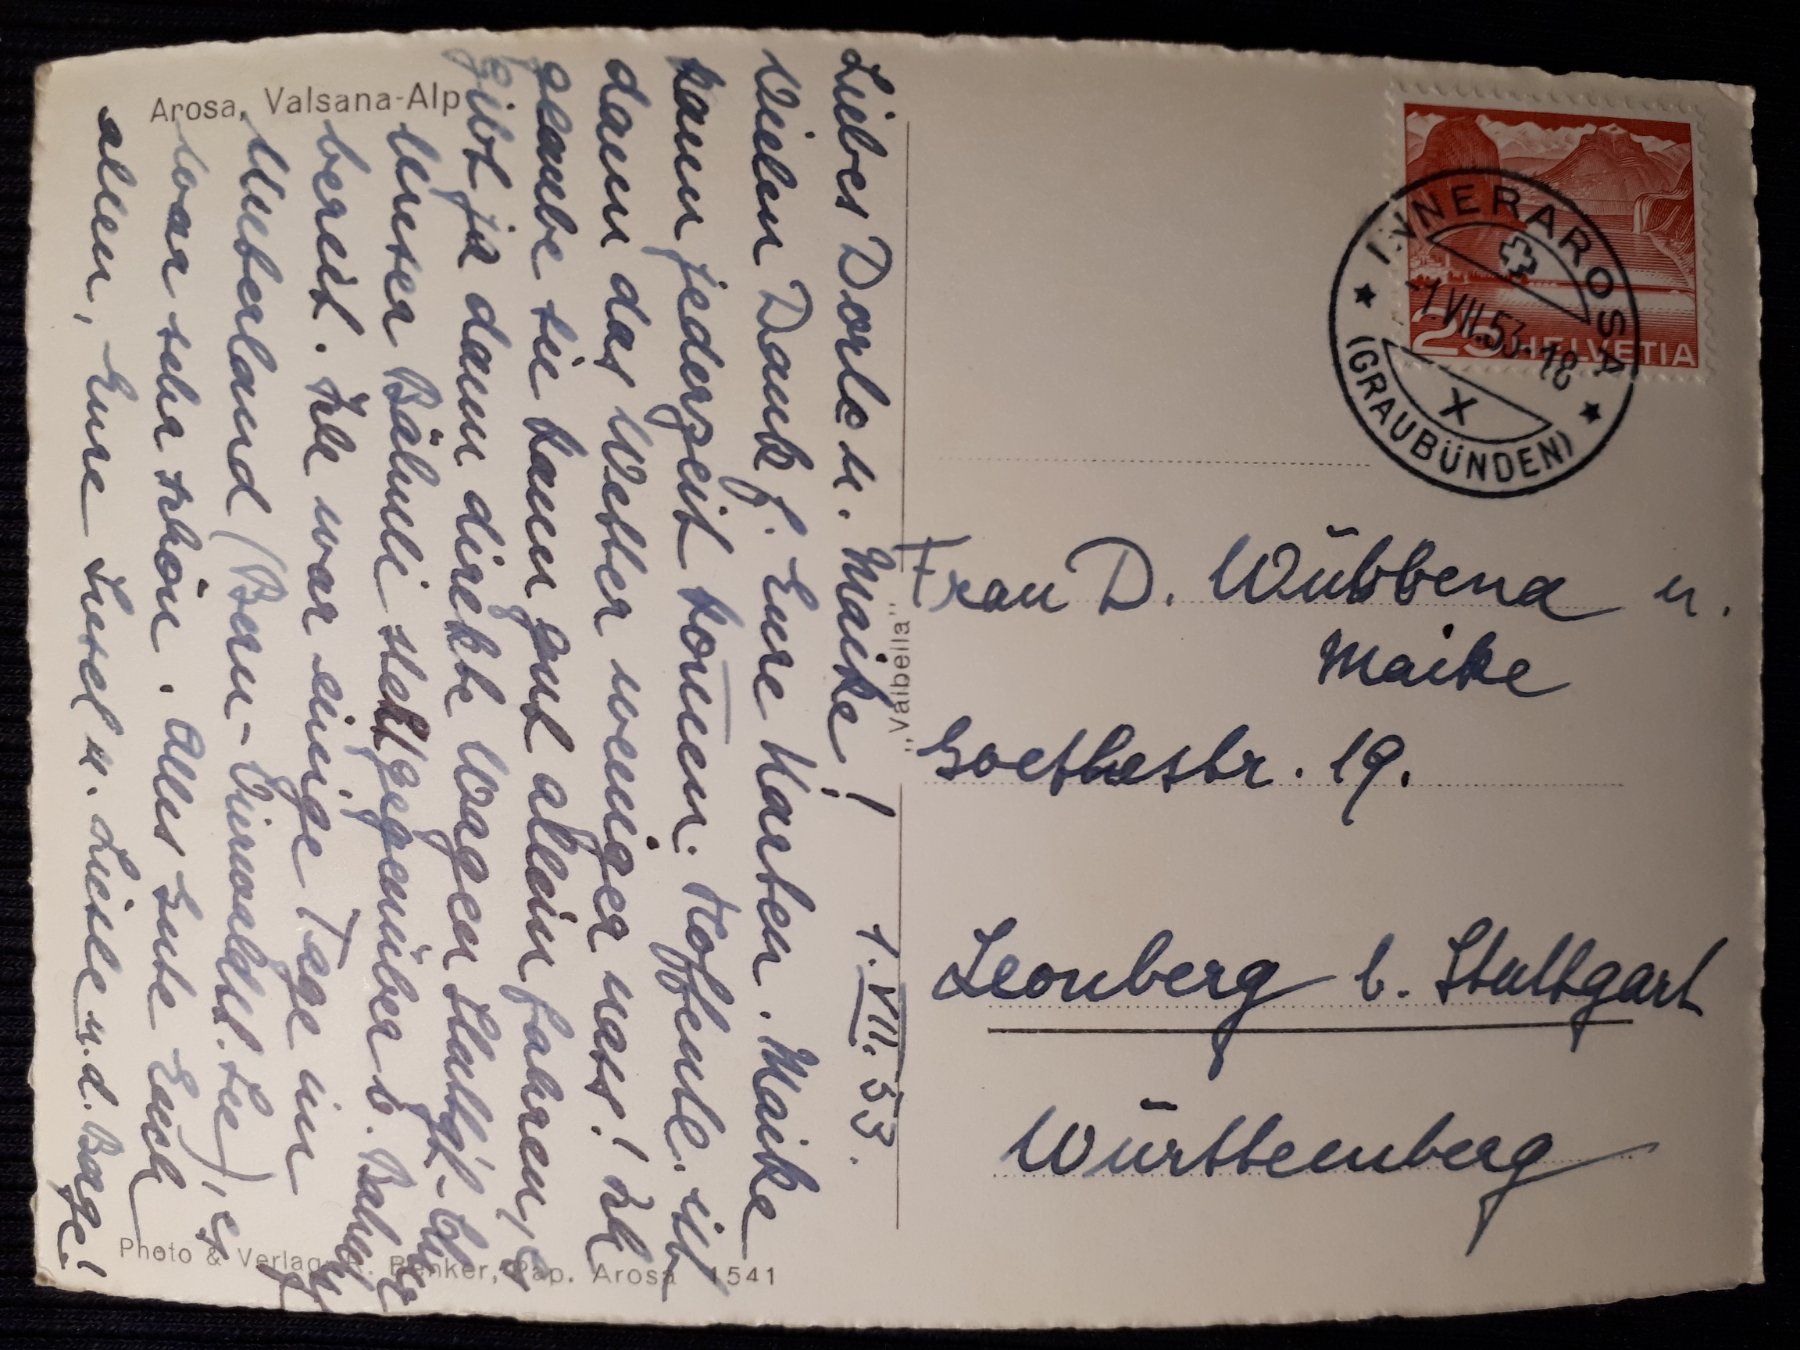 Arosa, Valsana-Alp
Liebes Dorle u. Maike!
1.VII.53.
Vielen Dank f. Eure Karten. Maike
kann jederzeit kom̄en. Hoffentl. ist
dann das Wetter weniger nass! Ich
glaube sie kann gut allein fahren, es
gibt ja dann direkte Wagen Stuttgt.-Chur
Unser Bähnli steht gegenüber b. Bahnhof
bereit. Ich war einige Tage im
Oberland (Bern-Vierwaldst. See), es
war sehr schön. Alles Gute Euch
allen, Eure Lisel u. d. Bage!
"Valbella"
Photo & Verlag Benker, Pap. Arosa 1541
HELVETIA
25
INNERAROSA
-1.VII.53-18
X
(GRAUBÜNDEN)
Frau D. Wübbena u.
Maike
Goethestr. 19.
Leonberg b. Stuttgart
Württemberg